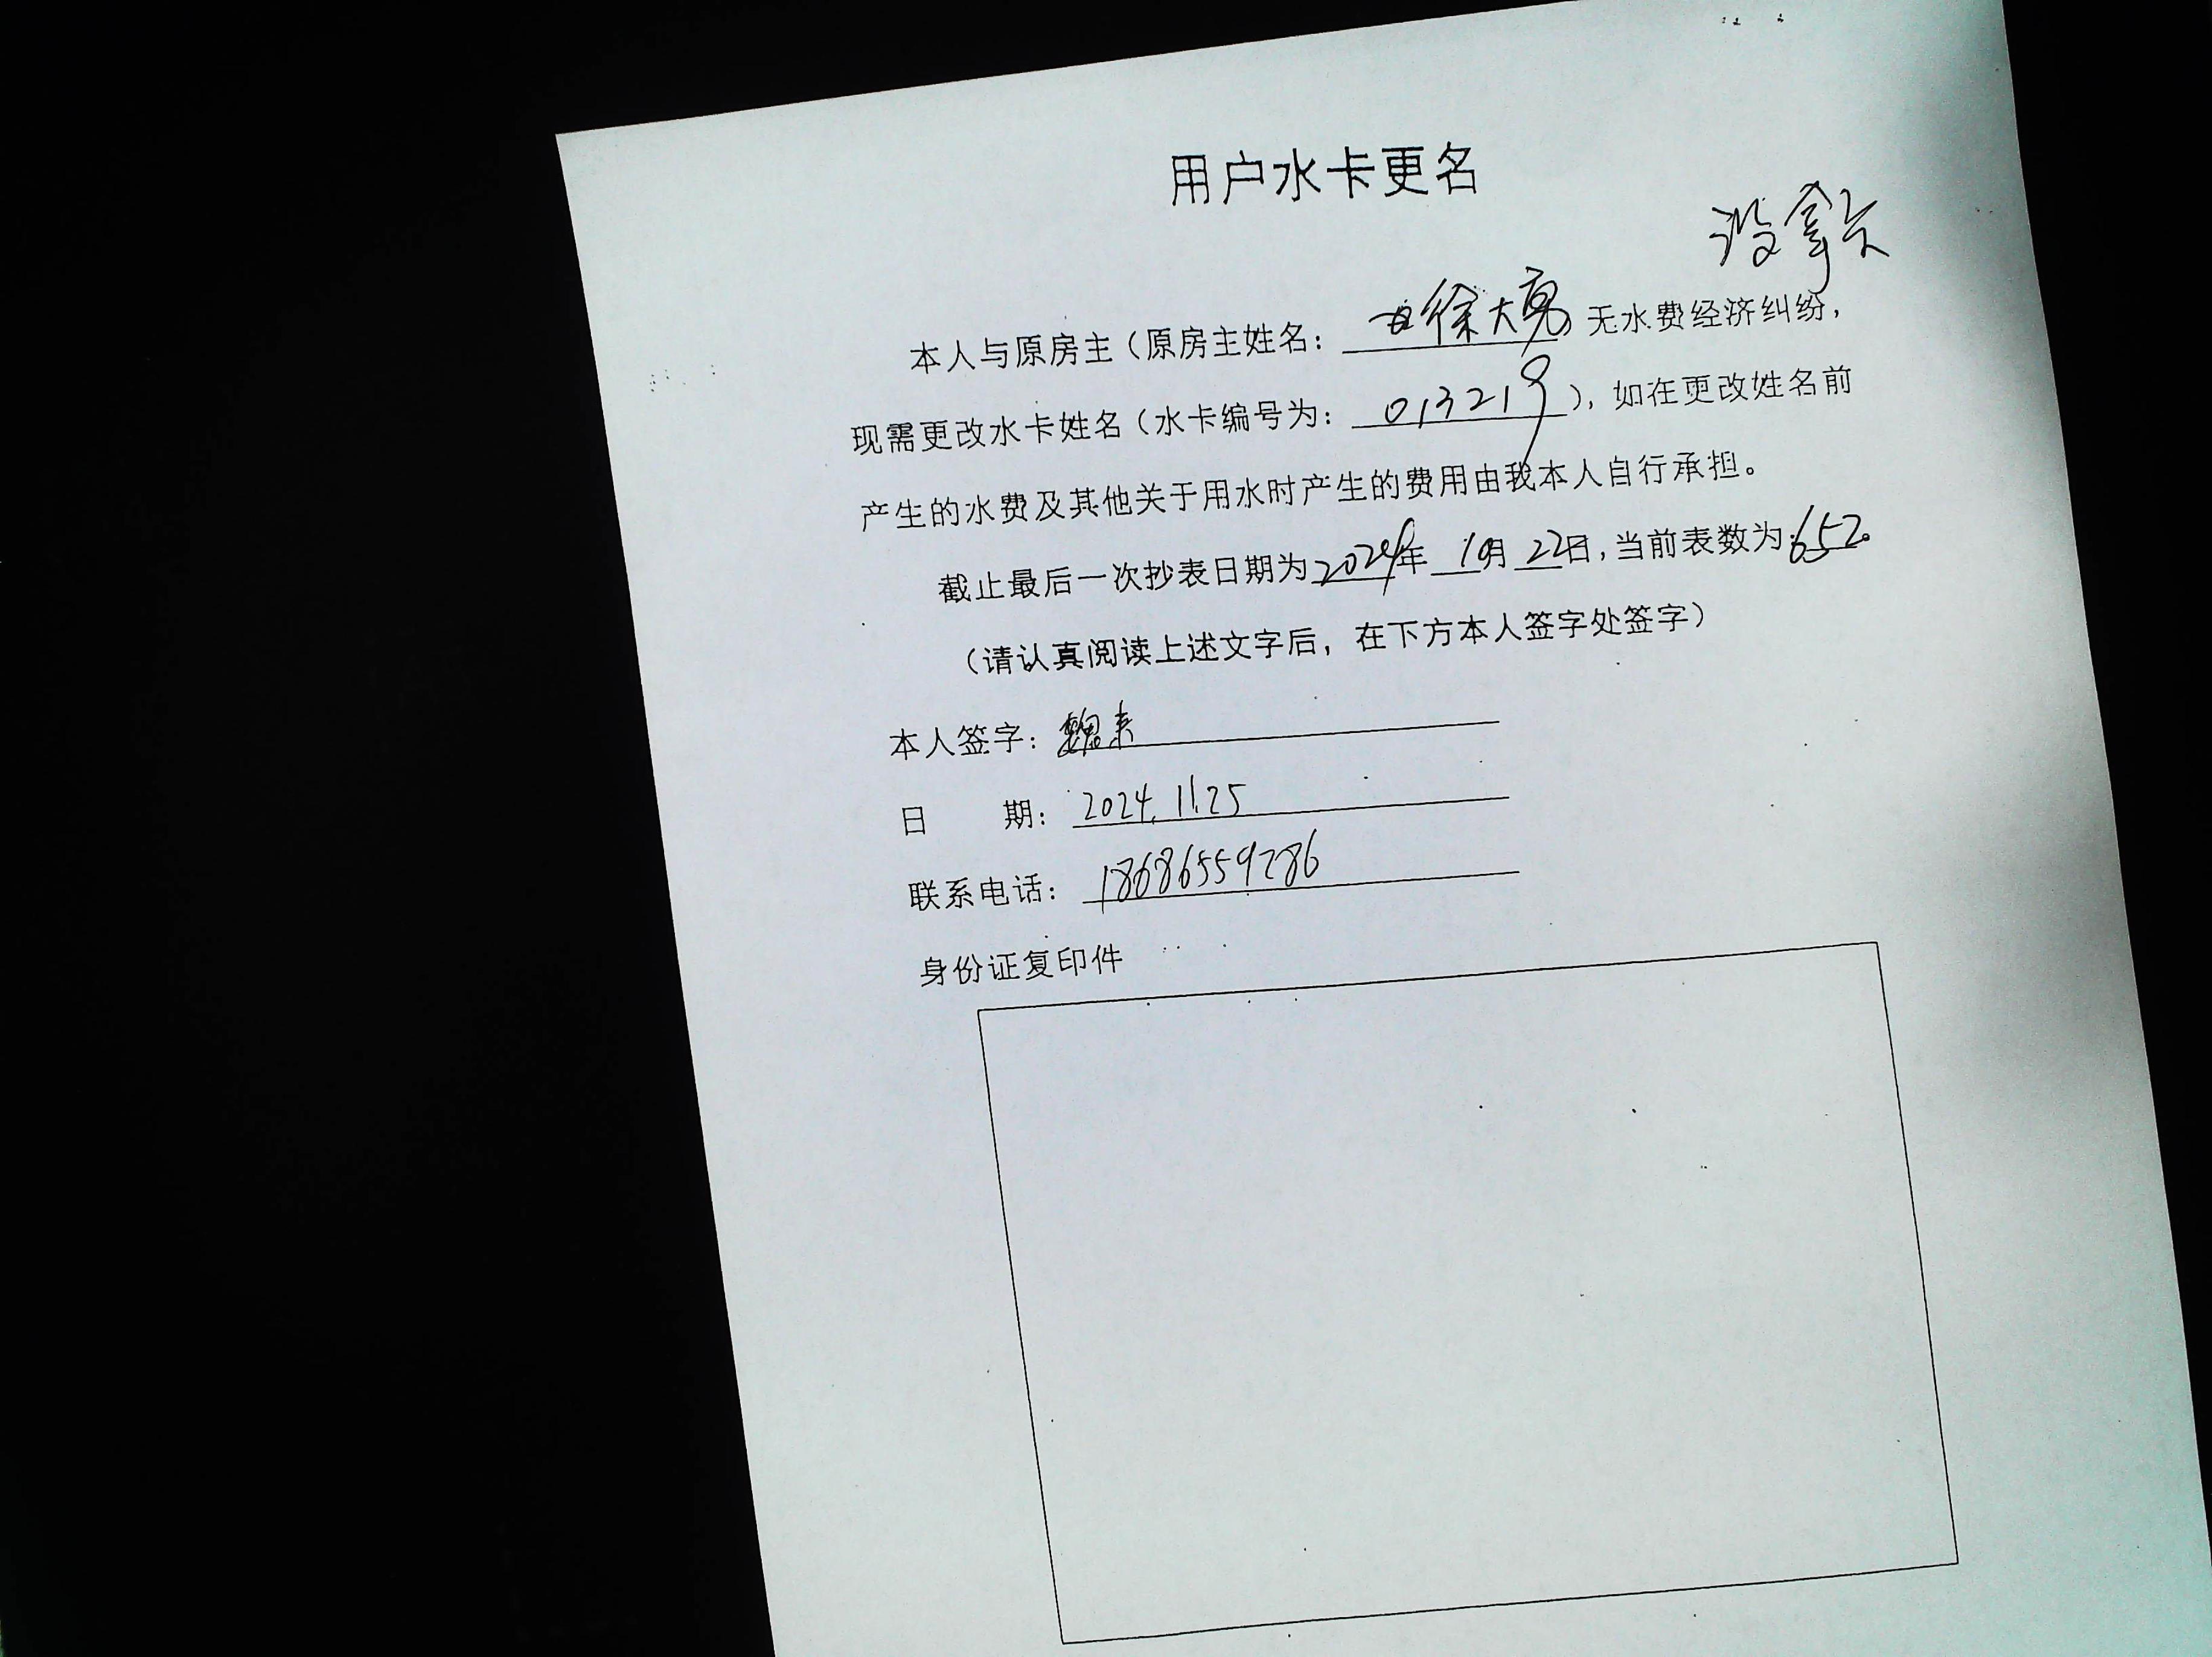 用户水卡更名
没拿卡
本人与原房主（原房主姓名：徐大亮）无水费经济纠纷，
现需更改水卡姓名（水卡编号为：013219），如在更改姓名前
产生的水费及其他关于用水时产生的费用由我本人自行承担。
截止最后一次抄表日期为2024年10月22日，当前表数为：652。
（请认真阅读上述文字后，在下方本人签字处签字）
本人签字：魏来
日期：2024.11.25
联系电话：18686559286
身份证复印件